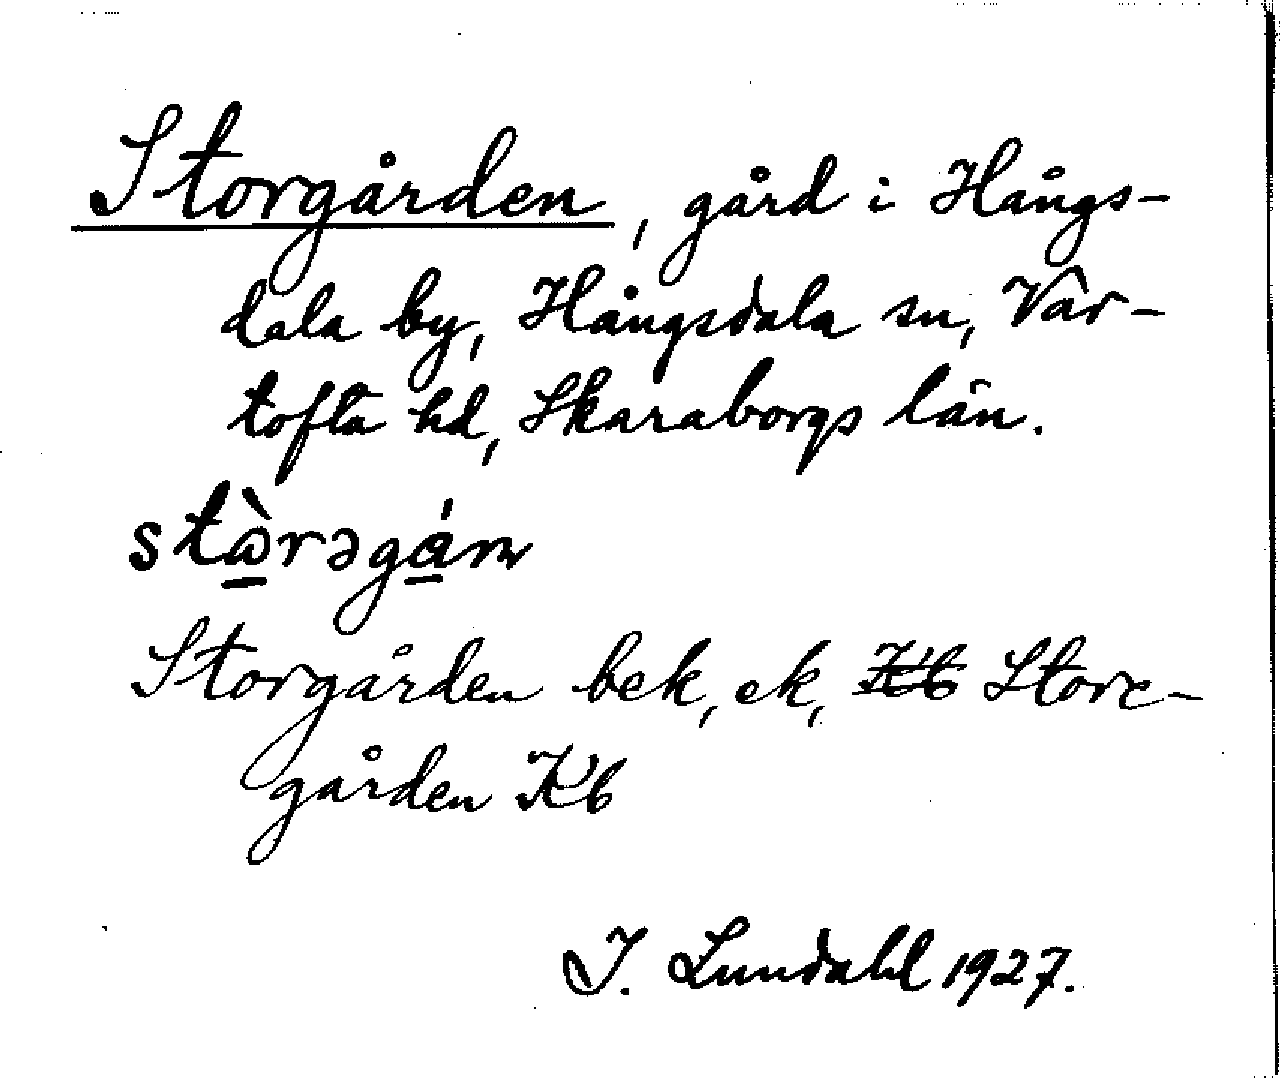 Storgården, gård i Hångs-
dala by, Hångsdala sn, Var-
tofta hd, Skaraborgs län.
Storgården bek, ek, Kb Store-
gården Kb
I. Lundahl 1927.